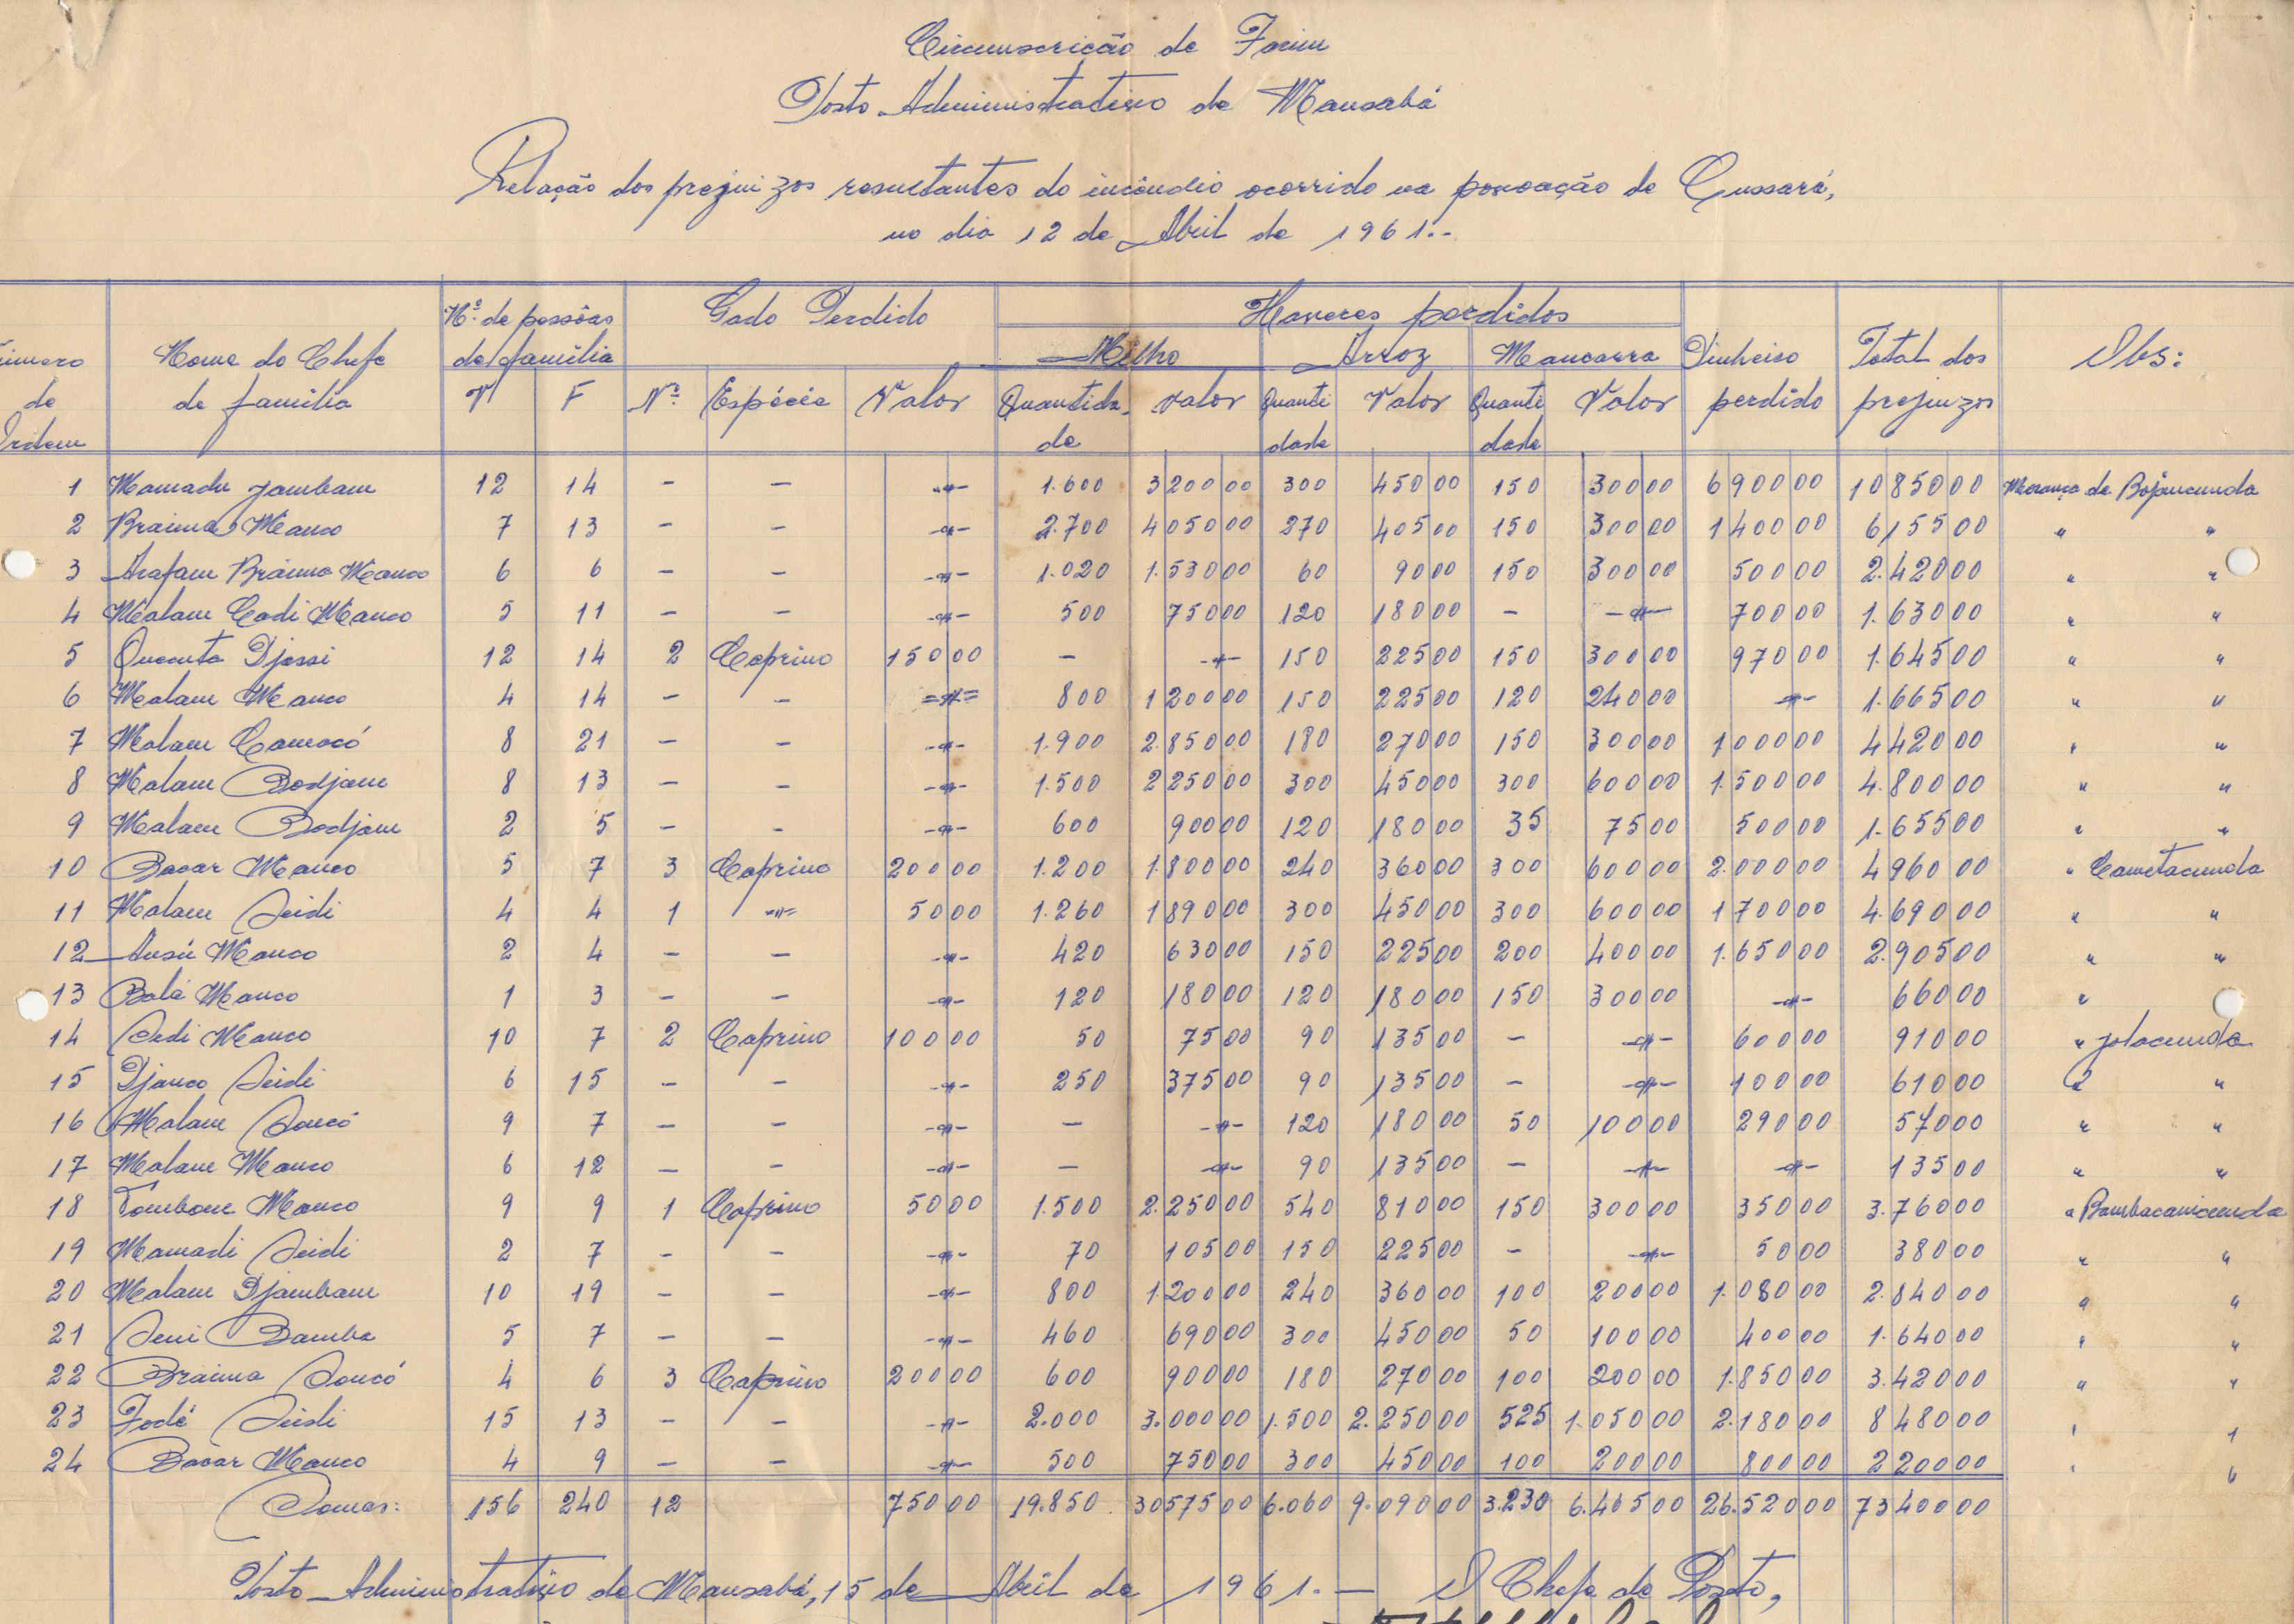 Circunscrição de Farim
Posto Administrativo de Mansabá
Relação dos prejuizos resultantes do incêndio ocorrido na povoação de Cussará,
no dia 12 de Abril de 1961.-
Número de Ordem | Nome do Chefe de familia | Nº. de pessôas de familia | Gado Perdido | Haveres perdidos | Dinheiro perdido | Total dos prejuizos | Obs:
Milho | Arroz | Mancarra
V | F | Nº. | Espécie | Valor | Quantidade | valor | Quantidade | Valor | Quantidade | Valor
1 Mamadu Jambam 12 14 - - -"- 1.600 3200 00 300 450 00 150 300 00 6900 00 10850 00 Morança de Bojancunda
2 Braima Manco 7 13 - - -"- 2.700 4050 00 270 405 00 150 300 00 1400 00 6155 00 " "
3 Arafam Braima Manco 6 6 - - -"- 1.020 1.530 00 60 90 00 150 300 00 500 00 2.420 00 " "
4 Malam Codi Manco 5 11 - - -"- 500 750 00 120 180 00 - -"- 700 00 1.630 00 " "
5 Quecuta Djassi 12 14 2 Caprino 150 00 - -"- 150 225 00 150 300 00 970 00 1.645 00 " "
6 Malam Manco 4 14 - - ="= 800 1200 00 150 225 00 120 240 00 -"- 1.665 00 " "
7 Malam Camacó 8 21 - - -"- 1.900 2.850 00 180 270 00 150 300 00 1000 00 4420 00 " "
8 Malam Bodjam 8 13 - - -"- 1.500 2250 00 300 450 00 300 600 00 1.500 00 4.800 00 " "
9 Malam Bodjam 2 5 - - -"- 600 900 00 120 180 00 35 75 00 500 00 1.655 00 " "
10 Bacar Manco 5 7 3 Caprino 200 00 1.200 1.800 00 240 360 00 300 600 00 2.000 00 4960 00 " Cametacunda
11 Malam Seidi 4 4 1 -"- 50 00 1.260 1890 00 300 450 00 300 600 00 1700 00 4.690 00 " "
12 Ansú Manco 2 4 - - -"- 420 630 00 150 225 00 200 400 00 1.650 00 2.905 00 " "
13 Balá Manco 1 3 - - -"- 120 180 00 120 180 00 150 300 00 -"- 660 00 "
14 Sedi Manco 10 7 2 Caprino 100 00 50 75 00 90 135 00 - -"- 600 00 910 00 " Jolacunda
15 Djanco Seidi 6 15 - - -"- 250 375 00 90 135 00 - -"- 100 00 610 00 " "
16 Malam Sancó 9 7 - - -"- - -"- 120 180 00 50 100 00 290 00 570 00 " "
17 Malam Manco 6 12 - - -"- - -"- 90 135 00 - -"- -"- 135 00 " "
18 Tombom Manco 9 9 1 Caprino 50 00 1.500 2.250 00 540 810 00 150 300 00 350 00 3.760 00 " Bambacamicunda
19 Mamadi Seidi 2 7 - - -"- 70 105 00 150 225 00 - -"- 50 00 380 00 " "
20 Malam Djambam 10 19 - - -"- 800 1.200 00 240 360 00 100 200 00 1.080 00 2.840 00 " "
21 Seni Bamba 5 7 - - -"- 460 690 00 300 450 00 50 100 00 400 00 1.640 00 " "
22 Braima Sancó 4 6 3 Caprino 200 00 600 900 00 180 270 00 100 200 00 1.850 00 3.420 00 " "
23 Fodé Seidi 15 13 - - -"- 2.000 3.000 00 1.500 2.250 00 525 1.050 00 2.180 00 8480 00 " "
24 Bacar Manco 4 9 - - -"- 500 750 00 300 450 00 100 200 00 800 00 2200 00 " "
Somas: 156 240 12 750 00 19.850 30575 00 6.060 9.090 00 3.230 6.465 00 26.520 00 73400 00
Posto Administrativo de Mansabá, 15 de Abril de 1961.- O Chefe de Posto,